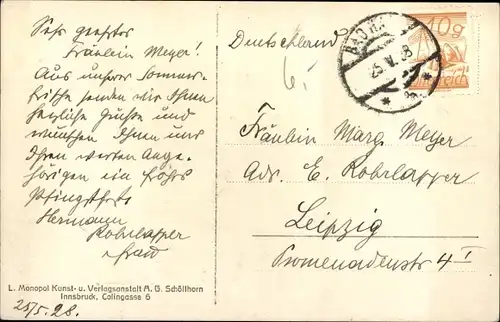 Sehr geehrtes
Fräulein Meyer!
Aus unserer Sommer-
frische senden wir Ihnen
herzliche Grüße und
wünschen Ihnen und
Ihren werten Ange-
hörigen ein
Pfingstfest
Hermann
Rohrlapper
Frau
L. Monopol Kunst- u. Verlagsanstalt A. G. Schöllhorn
Innsbruck, Colingasse 6
25/5.28.
Deutschland
10g
25.V.28
Fräulein Marg. Meyer
Adr. E. Rohrlapper
Leipzig
Promenadenstr 4 I